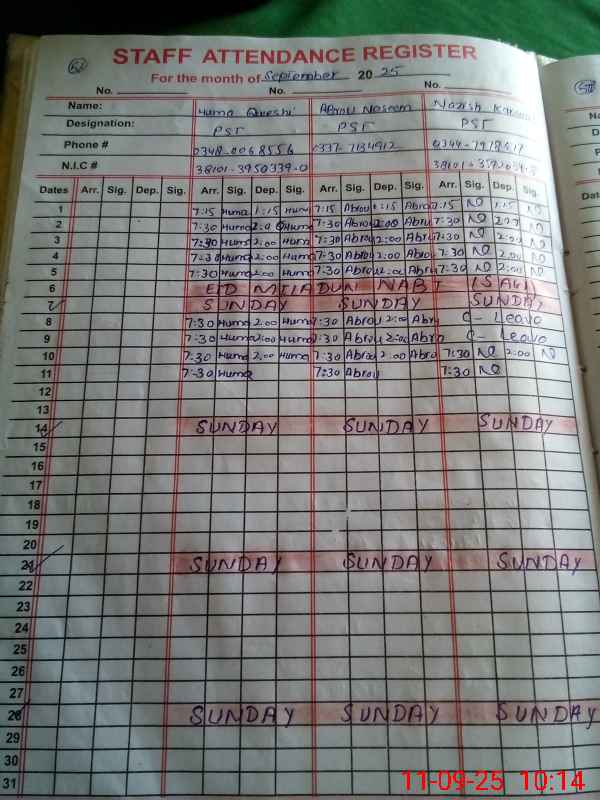 62
STAFF ATTENDANCE REGISTER
For the month of September 2025
No. No. No.
Name: Huma Qureshi Abrou Naseem Nazish
Designation: PST PST PST
Phone #
N.I.C # 38101-3950339-0
Dates Arr. Sig. Dep. Sig. Arr. Sig. Dep. Sig. Arr. Sig. Dep. Sig. Arr. Sig. Dep. Sig.
1 7:15 Huma 1:15 Huma 7:15 Abrou 1:15 Abrou 7:15 N 1:15 N
2 7:30 Huma 2:00 Huma 7:30 Abrou 2:00 Abrou 7:30 N N
3 7:30 Huma 2:00 Huma 7:30 Abrou 2:00 Abrou 7:30 N 2:00 N
4 7:30 Huma 2:00 Huma 7:30 Abrou 2:00 Abrou 7:30 N 2:00 N
5 7:30 Huma 2:00 Huma 7:30 Abrou 2:00 Abrou 7:30 N 2:00 N
6 EID MILADUN NABI (SAW)
7 SUNDAY SUNDAY SUNDAY
8 7:30 Huma 2:00 Huma 7:30 Abrou 2:00 Abrou C- Leave
9 7:30 Huma 2:00 Huma 7:30 Abrou 2:00 Abrou C- Leave
10 7:30 Huma 2:00 Huma 7:30 Abrou 2:00 Abrou 7:30 N 2:00 N
11 7:30 Huma 7:30 Abrou 7:30 N
12
13
14 SUNDAY SUNDAY SUNDAY
15
16
17
18
19
20
21 SUNDAY SUNDAY SUNDAY
22
23
24
25
26
27
28 SUNDAY SUNDAY SUNDAY
29
30
31
11-09-25 10:14